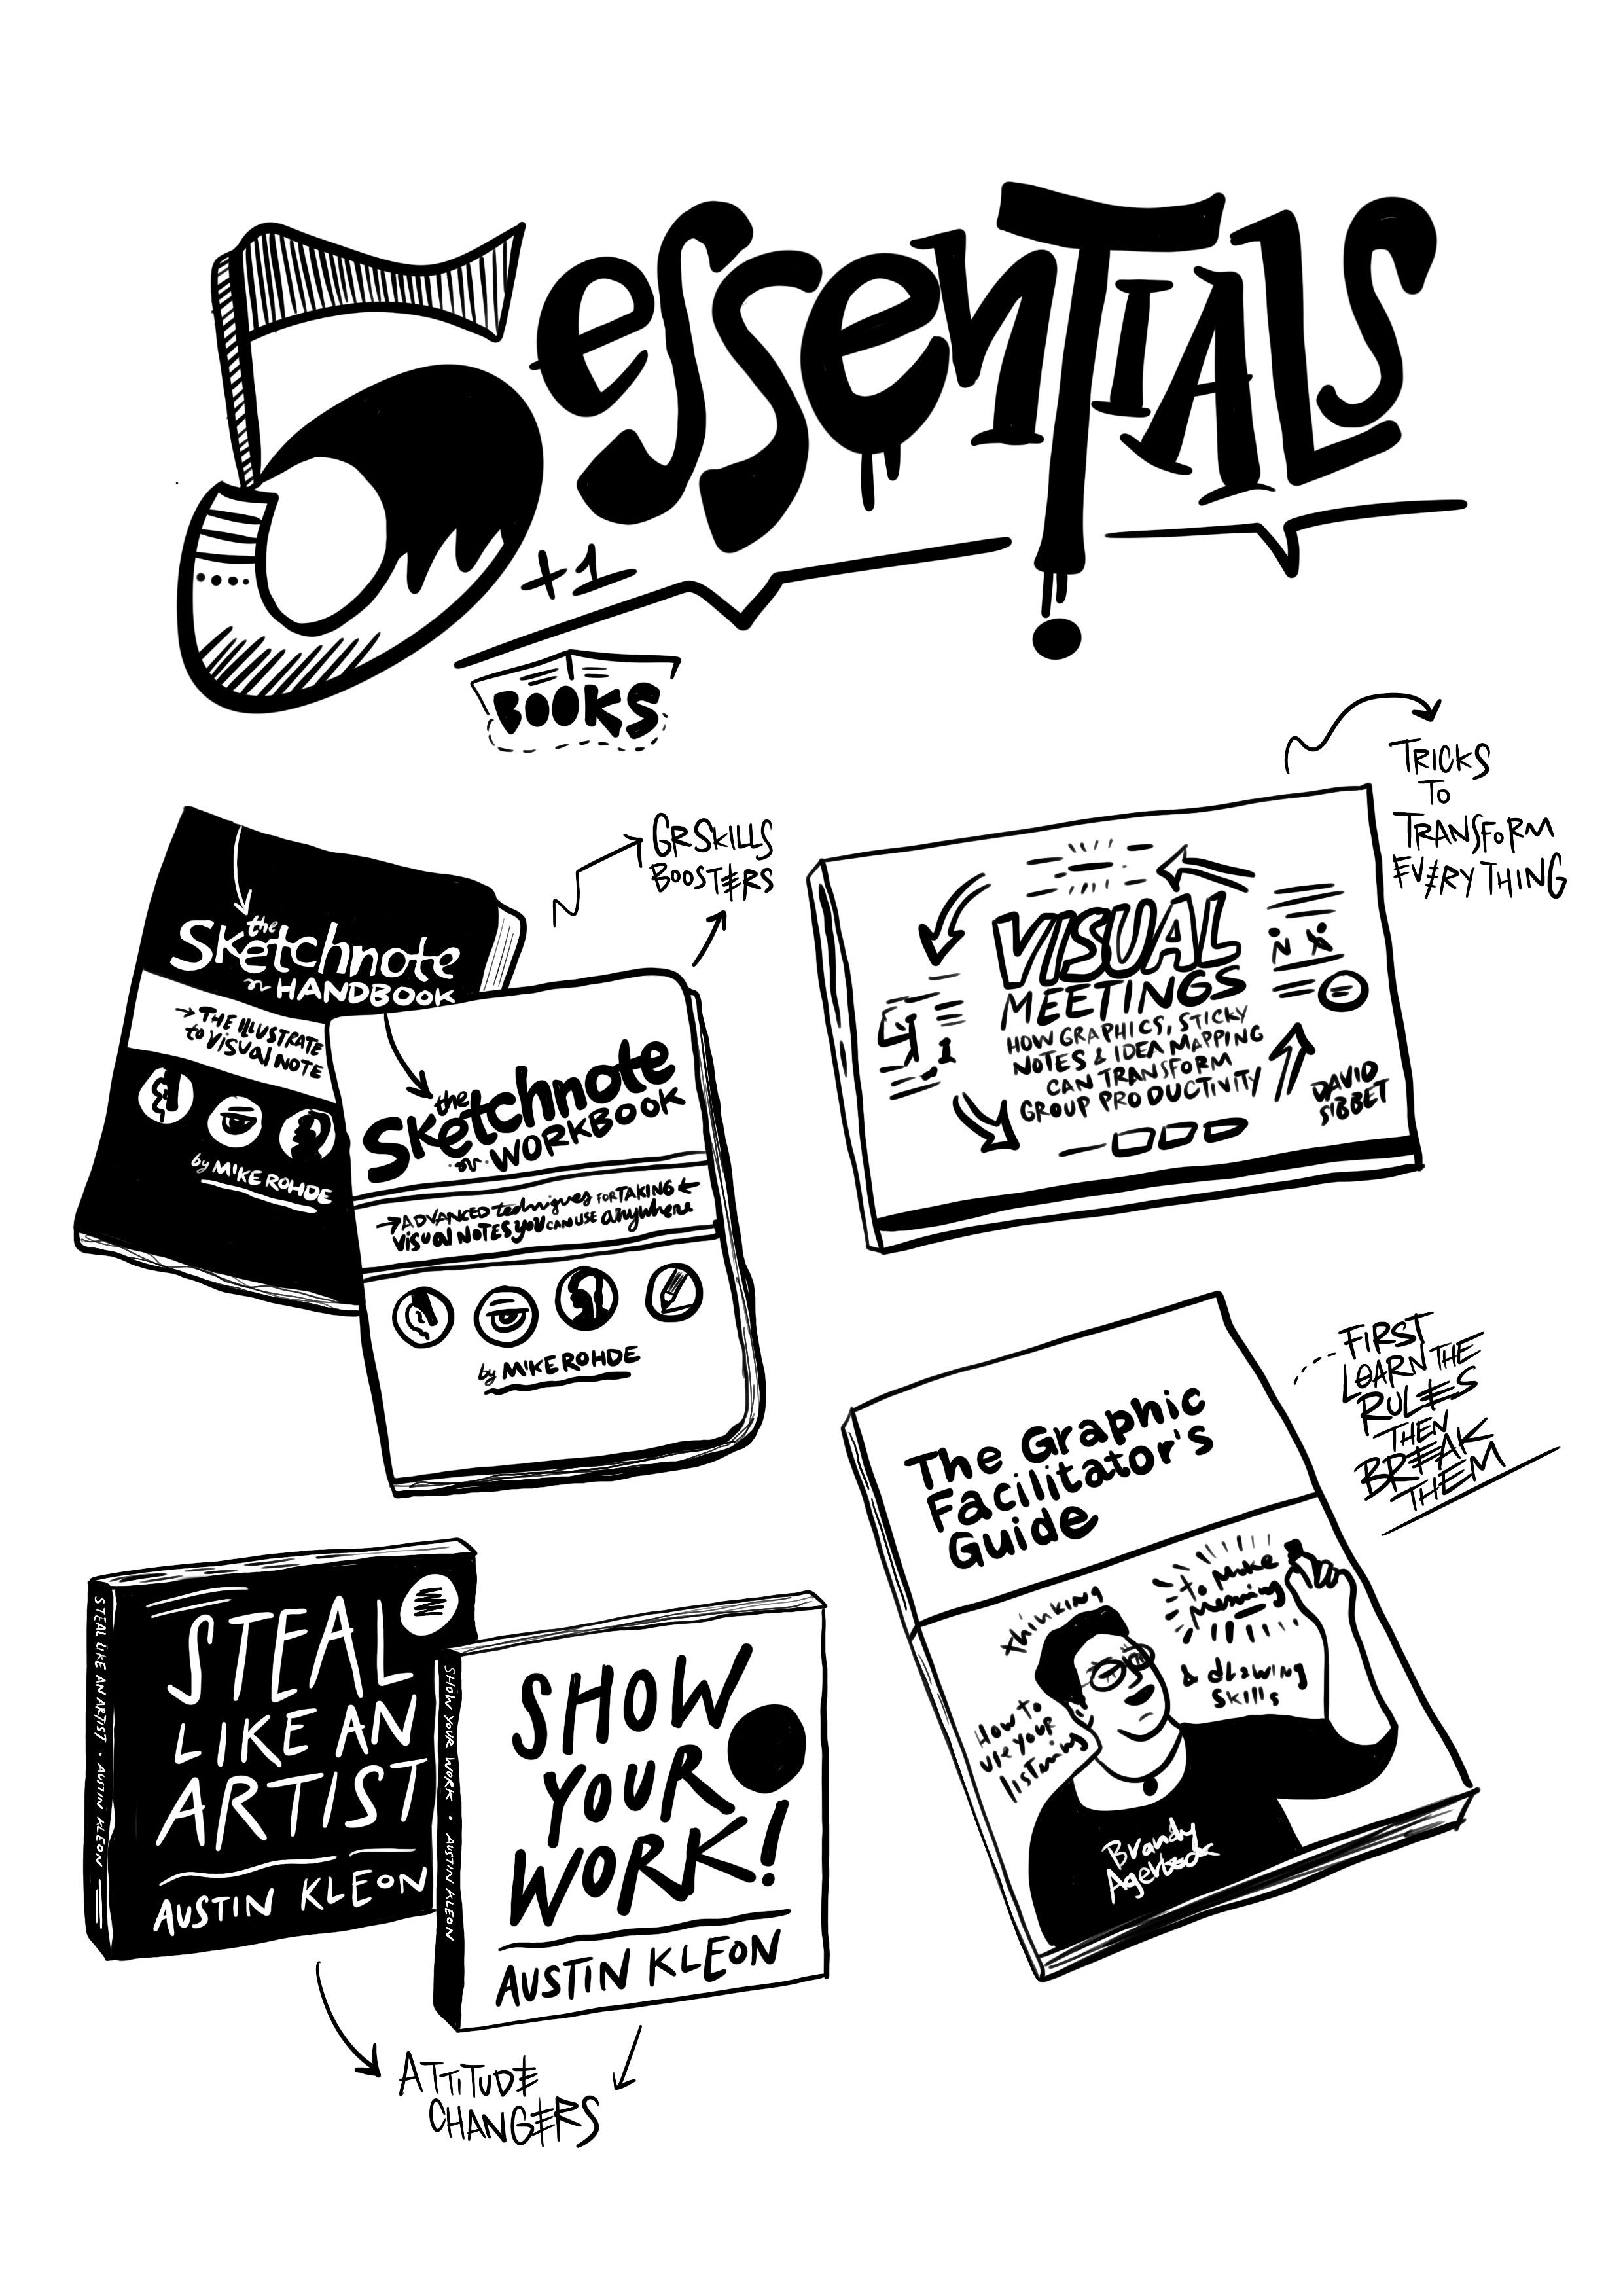 5 essentials
+1
BOOKS
GRSKILLS
BOOSTERS
the
Sketchnote
HANDBOOK
→ THE ILLUSTRATE
to VISUAL NOTE
by MIKE ROHDE
the
Sketchnote
WORKBOOK
→ ADVANCED techniques FOR TAKING ←
VISUAL NOTES YOU CAN USE anywhere
by MIKE ROHDE
TRICKS
TO
TRANSFORM
EVERYTHING
VISUAL
MEETINGS
HOW GRAPHICS, STICKY
NOTES & IDEA MAPPING
CAN TRANSFORM
GROUP PRODUCTIVITY
DAVID
SIBBET
FIRST
LEARN THE
RULES
THEN
BREAK
THEM
The Graphic
Facilitator's
Guide
How to
use your
listening
thinking
& drawing
skills
to make
meaning
Brandy
Agerbeck
STEAL LIKE AN ARTIST • AUSTIN KLEON
STEAL
LIKE AN
ARTIST
AUSTIN KLEON
SHOW YOUR WORK • AUSTIN KLEON
SHOW
YOUR
WORK!
AUSTIN KLEON
ATTITUDE
CHANGERS